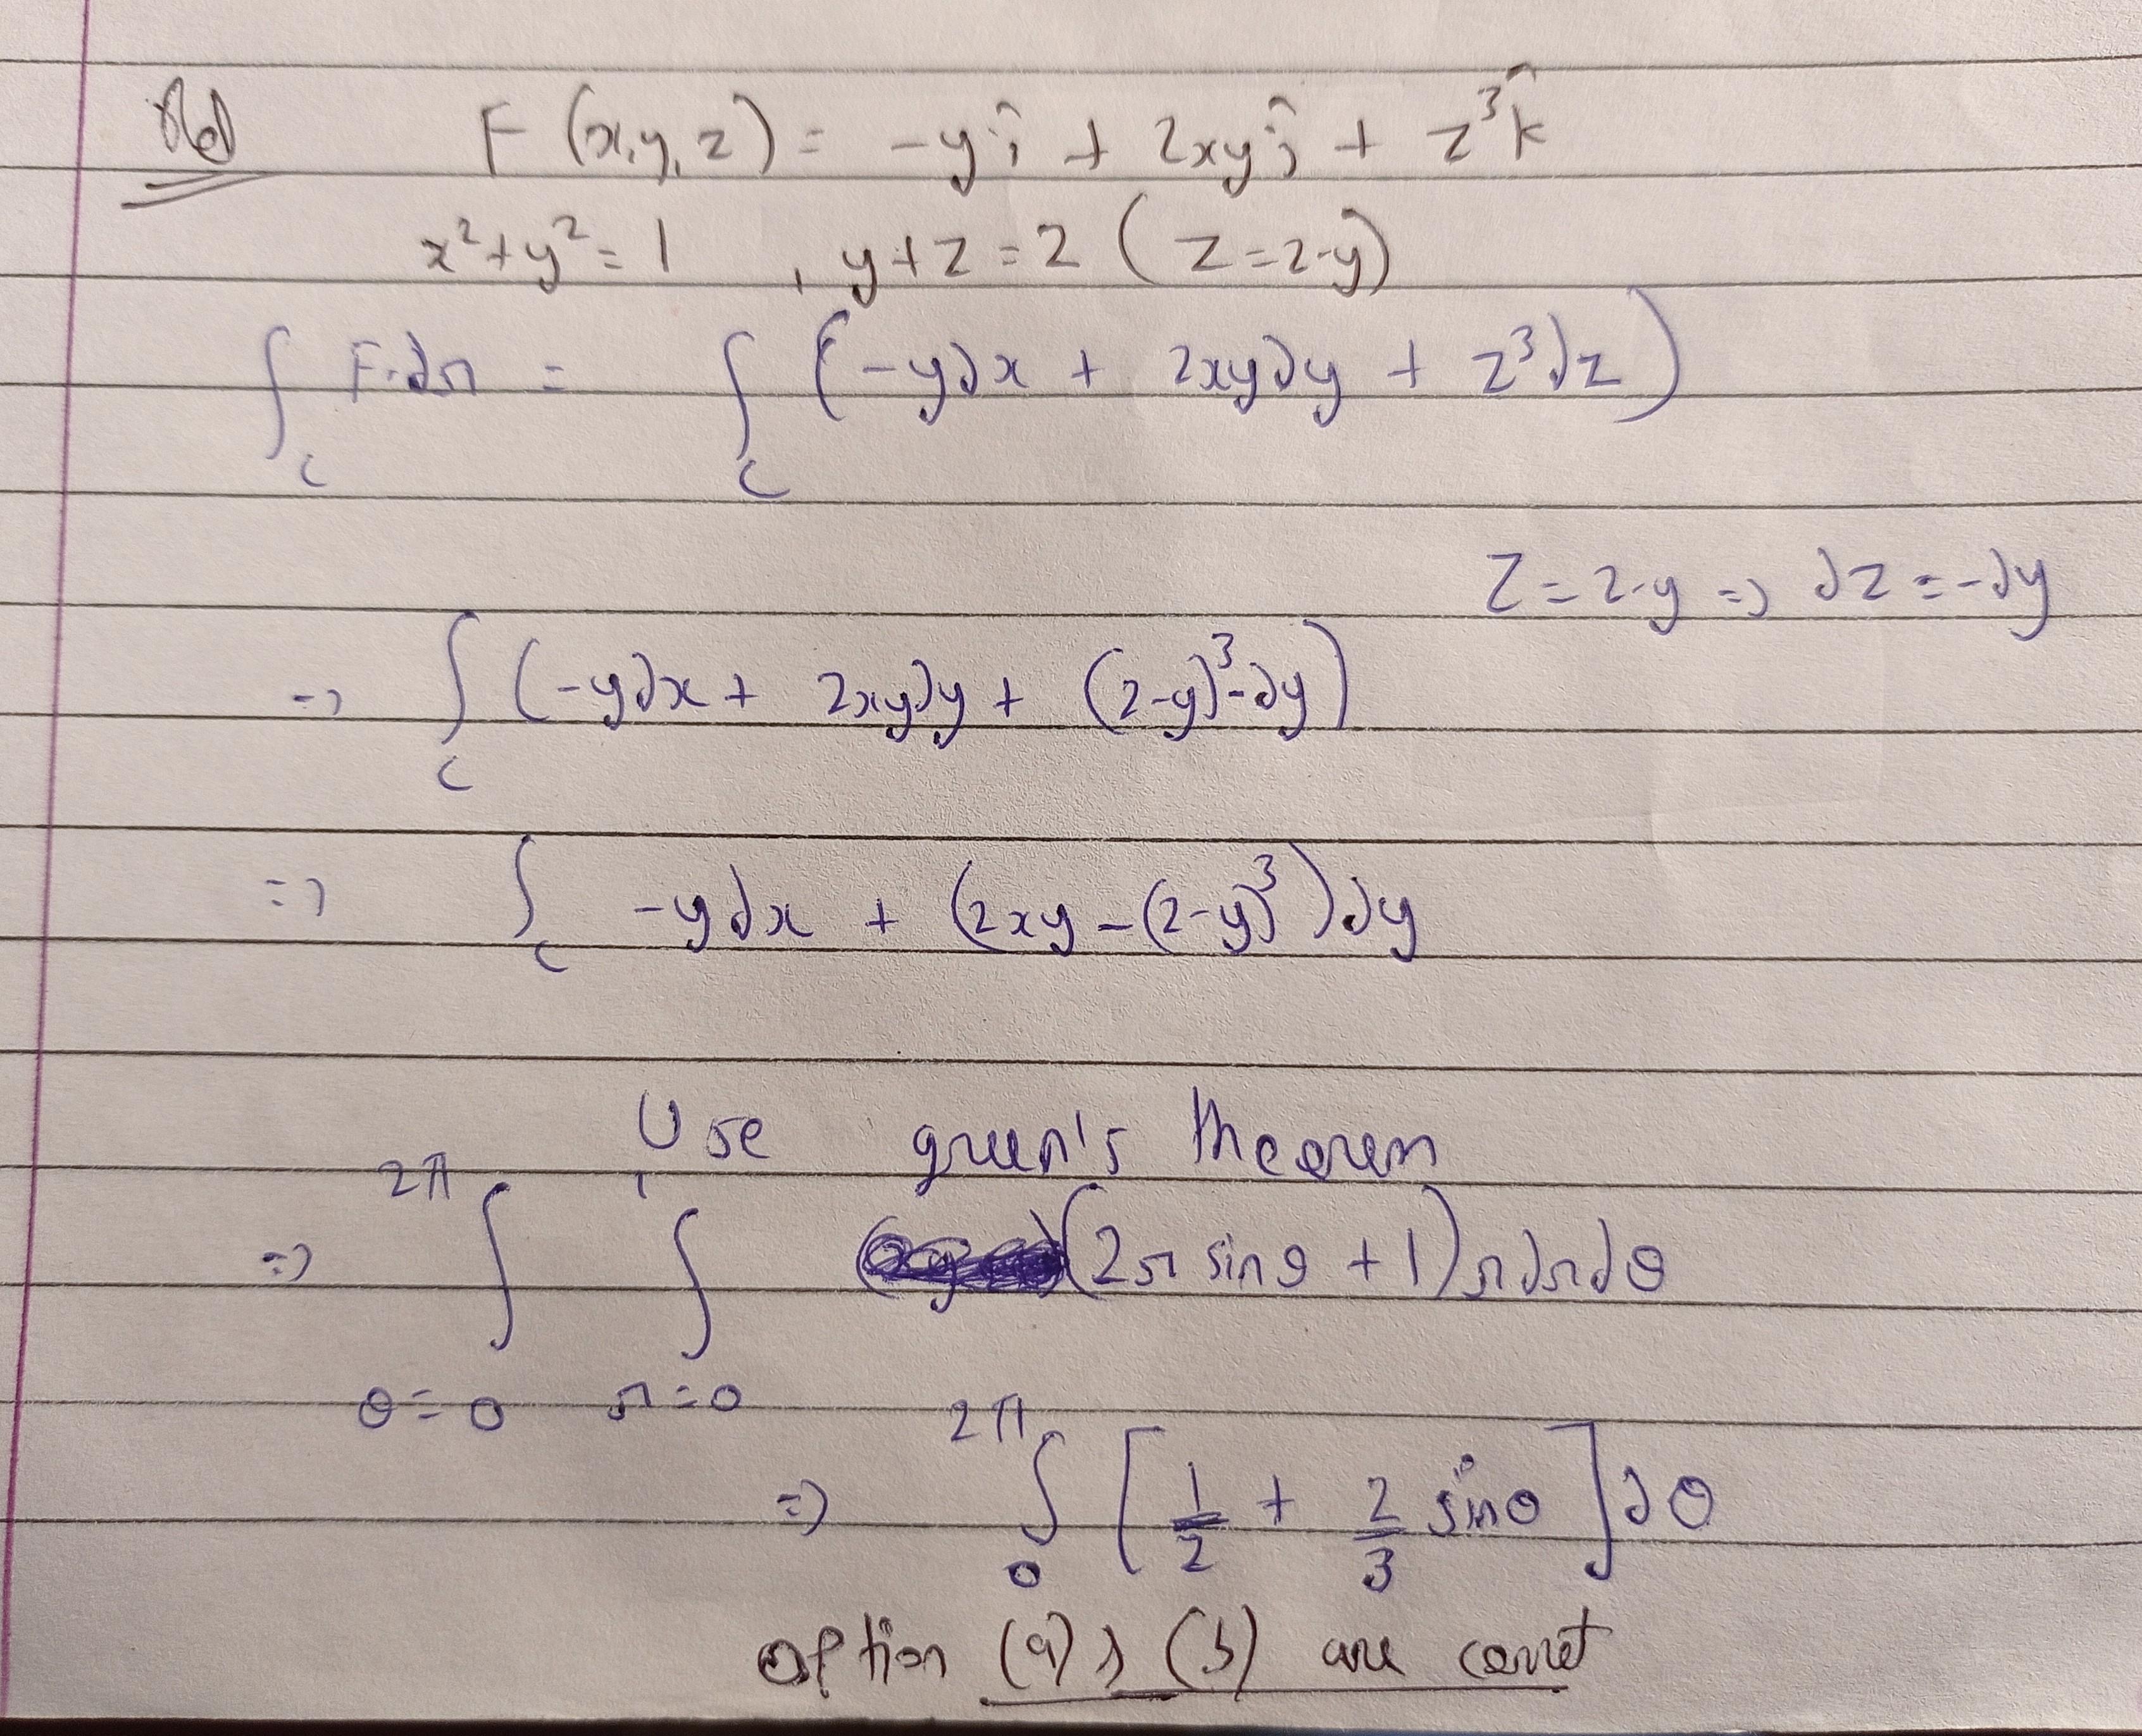 Sol F (x,y,z) = -yî + 2xyĵ + z³k̂
x²+y²=1 , y+z=2 (z=2-y)
∫_C F·dr = ∫_C (-ydx + 2xydy + z³dz)
z=2-y => dz=-dy
=> ∫_C (-ydx + 2xydy + (2-y)³-dy)
=> ∫_C -ydx + (2xy-(2-y)³)dy
Use green's theorem
=> ∫_{θ=0}^{2π} ∫_{r=0}^{1} (2r sinθ + 1) r dr dθ
=> ∫_0^{2π} [1/2 + 2/3 sinθ] dθ
option (a) & (b) are correct